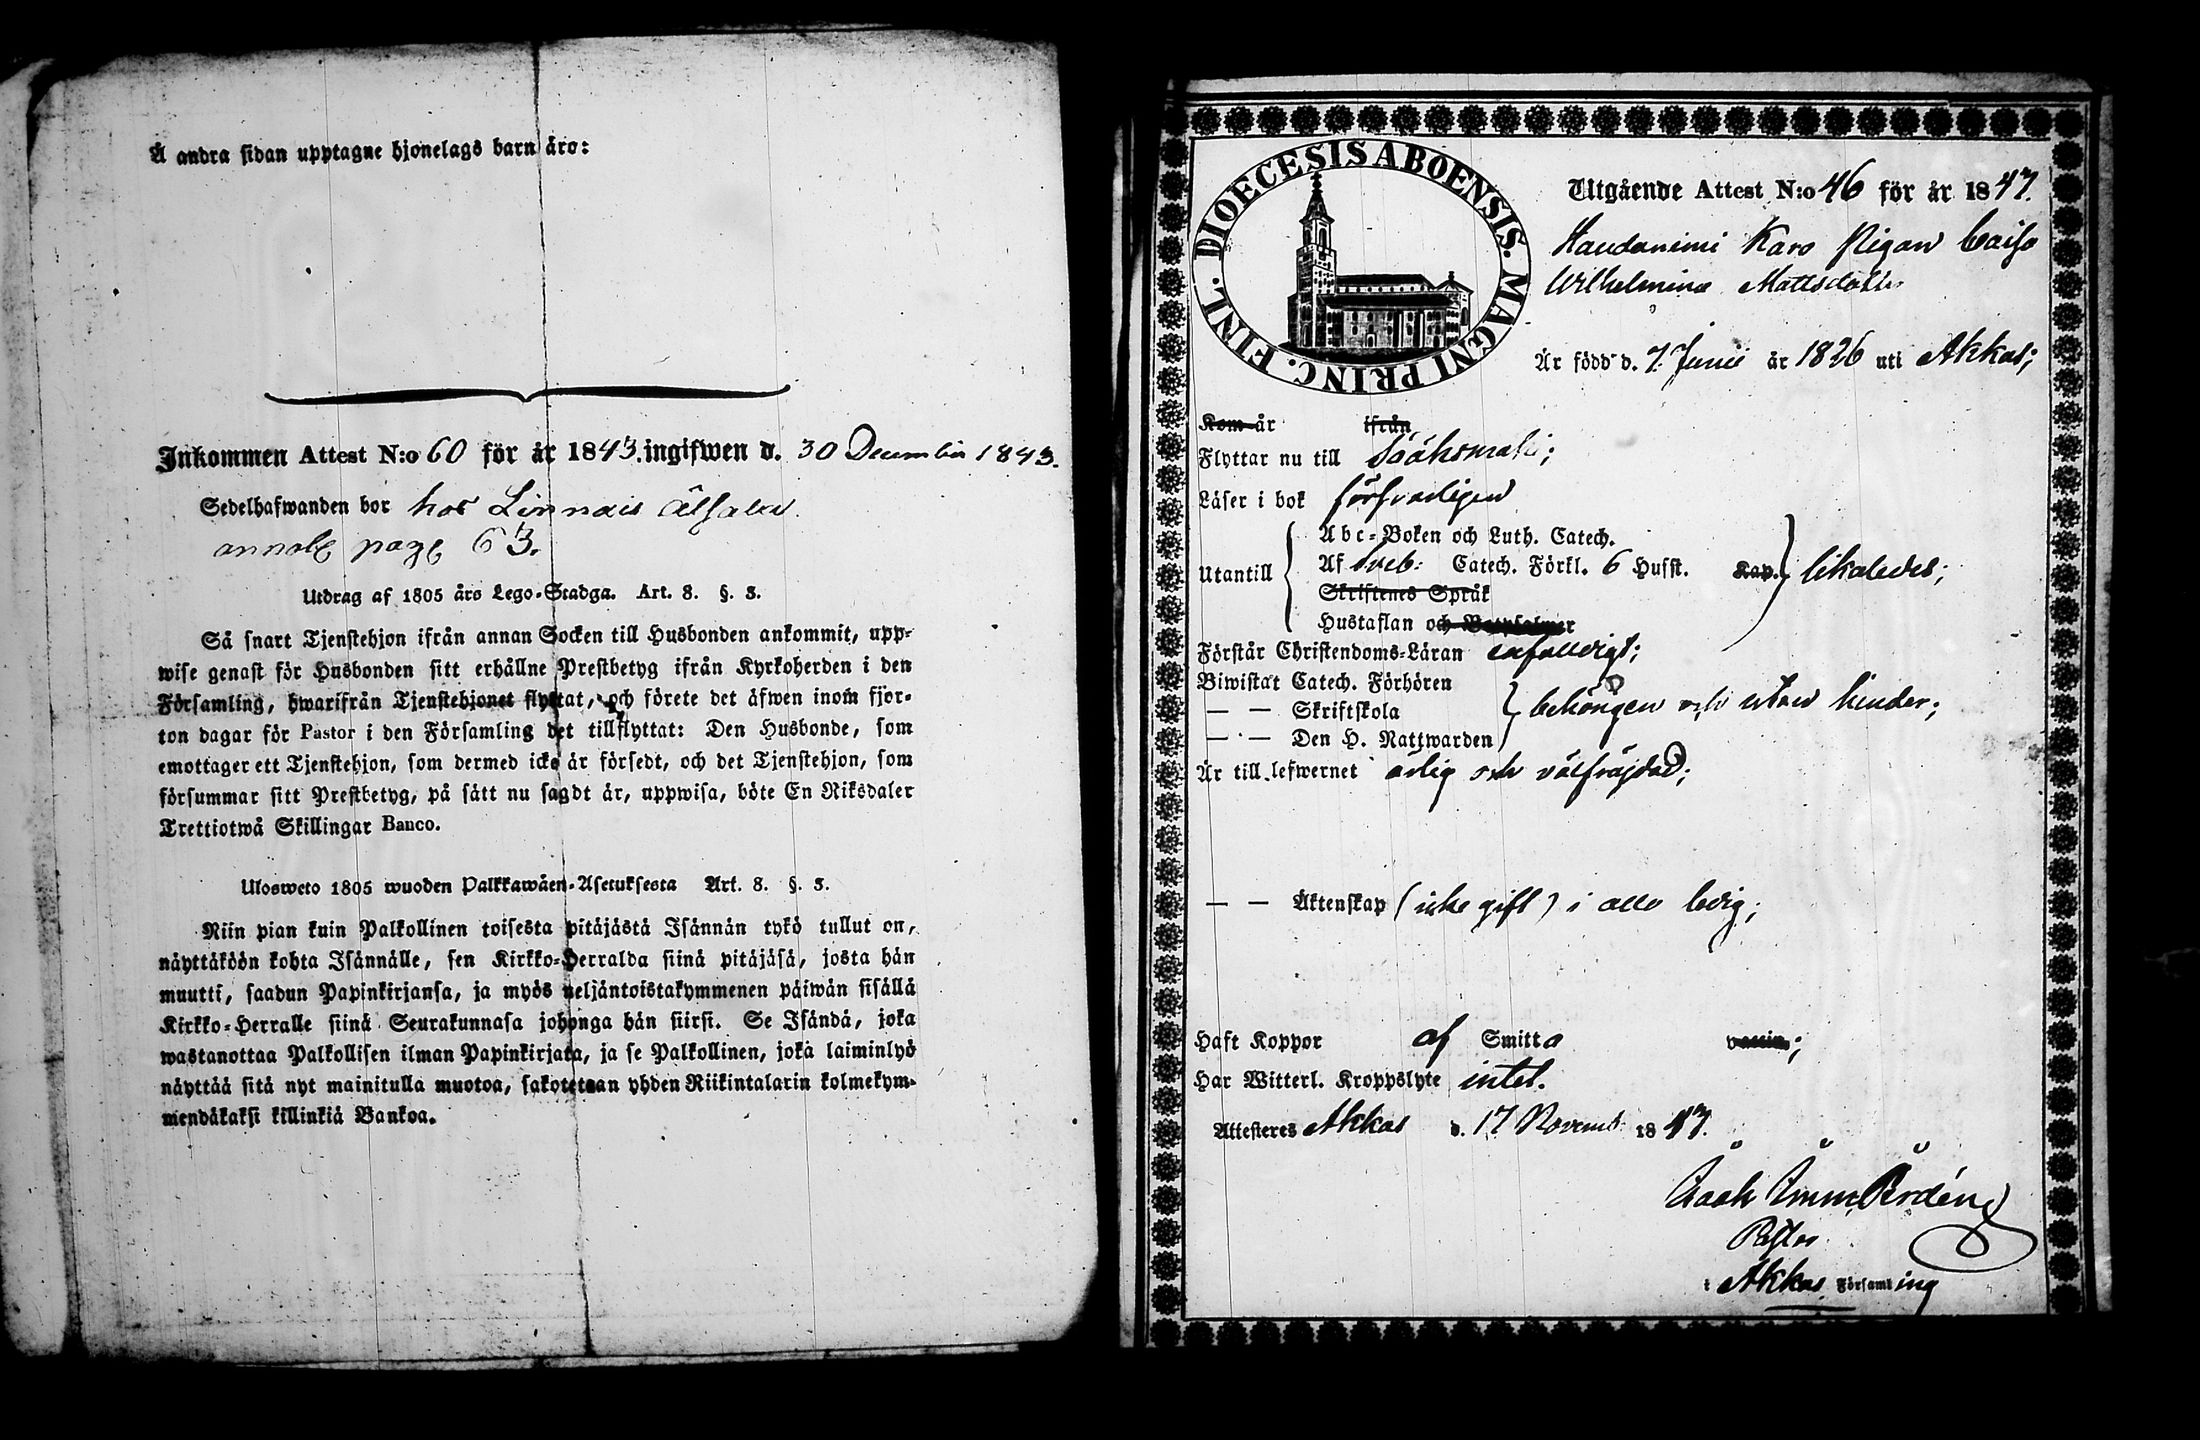 Å andra sidan upptagne hjonelags barn äro:
Inkommen Attest N:o 60 för år 1843. ingifwen d. 30 December 1843.
Sedelhafwanden bor hos Linnais
pag 63.
Utdrag af 1805 års Lego-Stadga. Art. 8. §. 3.
Så snart Tjenstehjon ifrån annan Socken till Husbonden ankommit, upp-
wise genast för Husbonden sitt erhållne Prestbetyg ifrån Kyrkoherden i den
Församling, hwarifrån Tjenstehjonet flyttat, och förete det äfwen inom fjor-
ton dagar för Pastor i den Församling det tillflyttat: Den Husbonde, som
emottager ett Tjenstehjon, som dermed icke är försedt, och det Tjenstehjon, som
försummar sitt Prestbetyg, på sätt nu sagdt är, uppwisa, böte En Riksdaler
Trettiotwå Skillingar Banco.
Ulosweto 1805 wuoden Palkkawäen-Asetuksesta Art. 8. §. 3.
Niin pian kuin Palkollinen toisesta pitäjästä Isännän tykö tullut on,
näyttäköön kohta Isännälle, sen Kirkko-Herralda siinä pitäjäsä, josta hän
muutti, saadun Papinkirjansa, ja myös neljäntoistakymmenen päiwän sisällä
Kirkko-Herralle siinä Seurakunnasa johonga hän siirsi. Se Isändä, joka
wastanottaa Palkollisen ilman Papinkirjata, ja se Palkollinen, joka laiminlyö
näyttää sitä nyt mainitulla muotoa, sakotetaan yhden Riikintalarin kolmekym-
mendäkaksi killinkiä Bankoa.
DIOECESIS ABOENSIS. MAGNI PRINC. FINL.
Utgående Attest N:o 46 för år 1847.
Karo Pigan Caisa
Wilhelmina Mattsdotter
Är född d. 7. Junii år 1826 uti Akkas;
Kom år ifrån
Flyttar nu till Sääksmäki;
Läser i bok försvarligen
Abc-Boken och Luth. Catech.
Utantill Af Sveb: Catech. Förkl. 6 Hufst. Kap. likaledes;
Skriftenes Språk
Hustaflan och Botpsalmer
Förstår Christendoms-Läran enfaldigt;
Biwistat Catech. Förhören
— — Skriftskola behörigen och utan hinder;
— — Den H. Nattwarden
Är till lefwernet ärlig och välfräjdad;
— — Äktenskap (icke gift) i allo ledig;
Haft Koppor af Smitta vaccin;
Har Witterl. Kroppslyte intet.
Attesteres Akkas d. 17 Novemb 1847.
Isach Imm. Ordéng
Pastor
i Akkas Församling